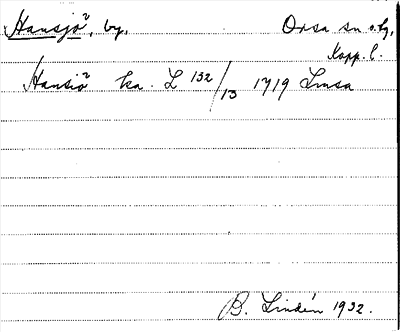 Hansjö, by,
Orsa sn o. hg,
Kopp. l.
Hansiö ka. L 132/13 1719 Lmsa
B. Lindén 1932.